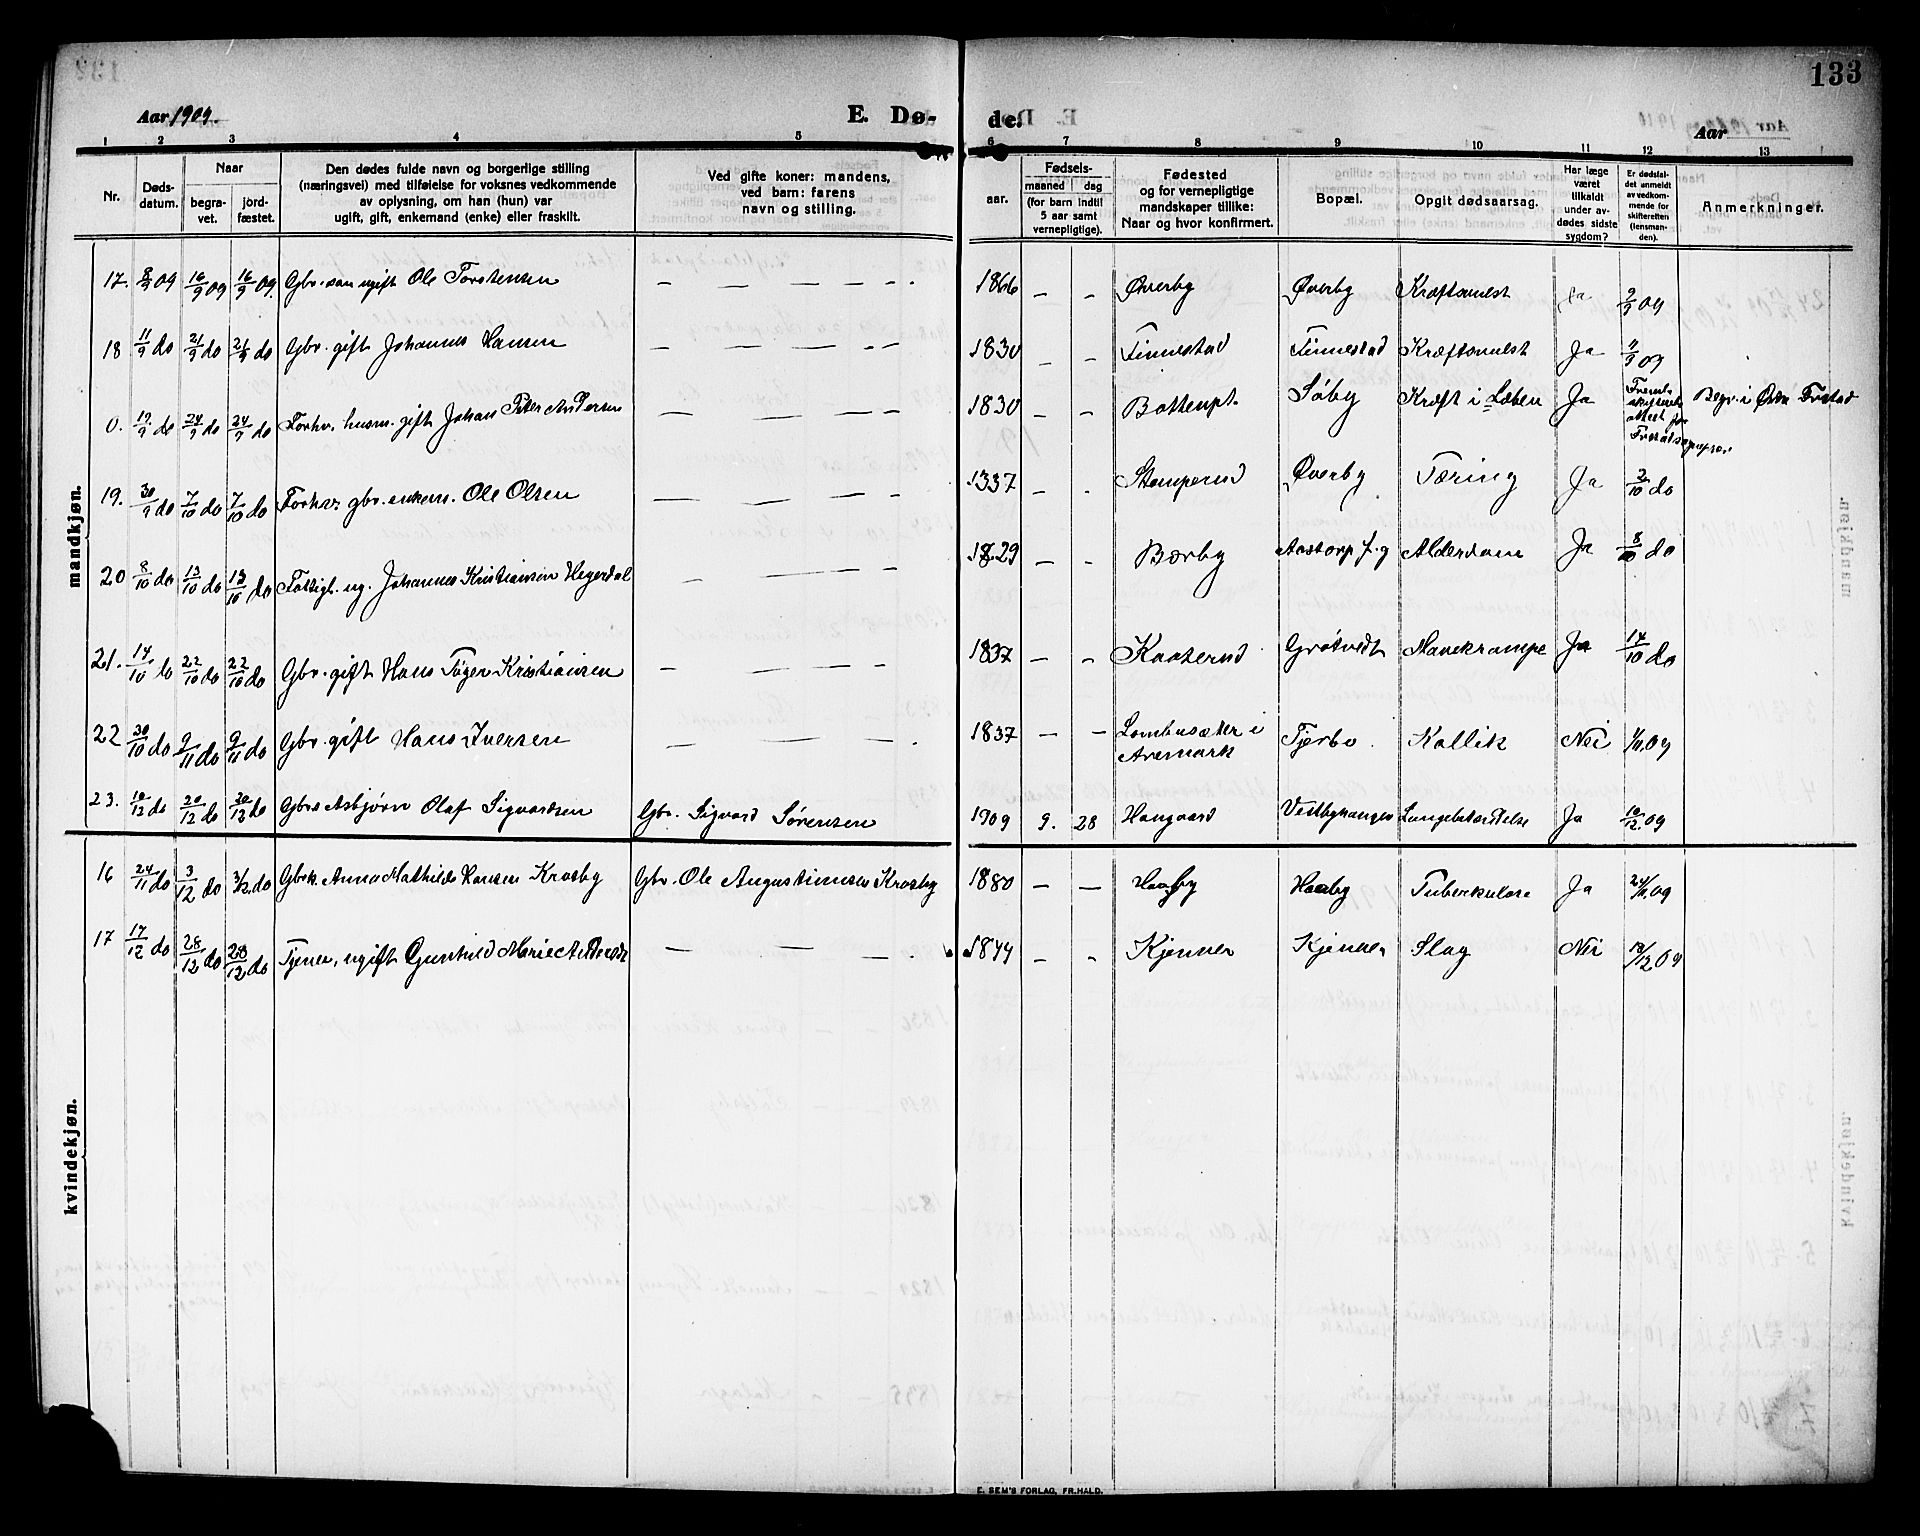 133
Aar 1909.
E. Dø-
de.
Aar
1 2 3 4 5 6 7 8 9 10 11 12 13
Nr.
Døds-
datum.
Naar
begra-
vet.
jord-
fæstet.
Den dødes fulde navn og borgerlige stilling
(næringsvei) med tilføielse for voksnes vedkommende
av oplysning, om han (hun) var
ugift, gift, enkemand (enke) eller fraskilt.
Ved gifte koner: mandens,
ved barn: farens
navn og stilling.
aar.
Fødsels-
maaned dag
(for barn indtil
5 aar samt
vernepligtige).
Fødested
og for vernepligtige
mandskaper tillike:
Naar og hvor konfirmert.
Bopæl.
Opgit dødsaarsag.
Har læge
været
tilkaldt
under av-
dødes sidste
sygdom?
Er dødsfal-
det anmeldt
av vedkom-
mende for
skifteretten
(lensman-
den).
Anmerkninger.
mandkjøn.
17. 8/9 09 16/9 09 16/9 09. Gbr. søn ugift Ole Torstensen — — — - . 1866 — — Øverby Øverby Kræftsvulst Ja 9/9 09
18 11/9 do 21/9 do 21/9 do Gbr. gift Johannes Hansen — — — - - 1830 — — Tinnestad Tinnestad Kræftsvulst Ja 11/9 09
0. 19/9 do 24/9 do 24/9 do Forhv. husm. gift Johan Peter Andersen — — — - 1830 — — Bottenpt. Søby Kræft i Læben Ja attest Begr. i
19. 30/9 do 7/10 do 7/10 do Forhv. gbr. enkem. Ole Olsen — — — - 1837 — . Stomperud Øverby Tæring Ja 2/10 do
20 8/10 do 13/10 do 13/10 do Fattigl. ug. Johannes Kristiansen Hegerdal — — — - 1829 — - Bærby Aastorp f.g Alderdom Ja 8/10 do
21. 14/10 do 22/10 do 22/10 do Gbr. gift Hans Kristiansen — — — - 1837 — - Kaaserud Grøtvedt Mavekrampe Ja 14/10 do
22 30/10 do 9/11 do 9/11 do Gbr. gift Hans Iversen — — — - 1837 — — i
Aremark Tjerbo Kollik Nei 1/11.09
23. 10/12 do 20/12 do 20/12 do Gbrs Asbjørn Olaf Sigvardsen Gbr. Sigvard Sørensen 1909 9. 28 Haugaard Ja 10/12.09
kvindekjøn.
16 24/11 do 3/12 do 3/12 do Gbrk. Anna Mathilde Hansen Krosby Gbr. Ole Augustinusen Krosby 1880 — — Haaby Haaby Tuberkulose Ja 24/11.09
17 17/12 do 28/12 do 28/12 do Tjener, ugift Gunhild Marie — — — 1844 — - Kjenner Kjenner Slag Nei 18/12 09
E. SEM'S FORLAG, FR.HALD.